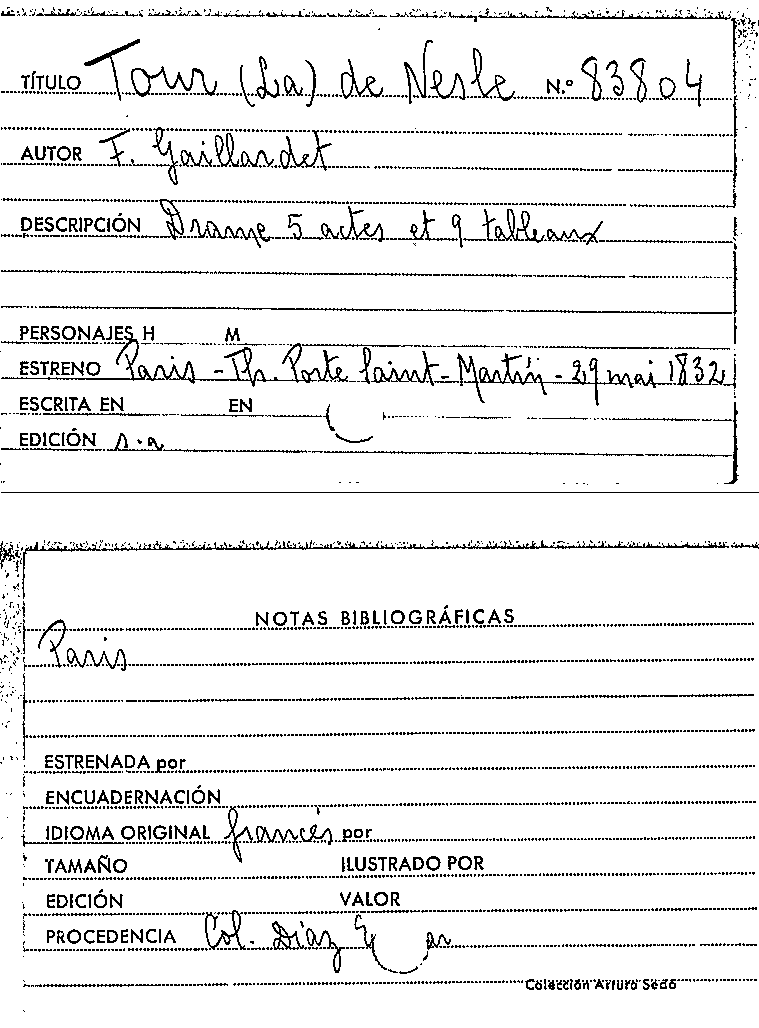 TÍTULO Tour (La) de Nesle N.º 83804
AUTOR F. Gaillardet
DESCRIPCIÓN Drame 5 actes et 9 tableaux
PERSONAJES H M
ESTRENO Paris - Th. Porte Saint-Martin - 29 mai 1832
ESCRITA EN EN
EDICIÓN s.a
NOTAS BIBLIOGRÁFICAS
Paris
ESTRENADA por
ENCUADERNACIÓN
IDIOMA ORIGINAL francés por
TAMAÑO ILUSTRADO POR
EDICIÓN VALOR
PROCEDENCIA Col. Díaz
Colección Arturo Sedó